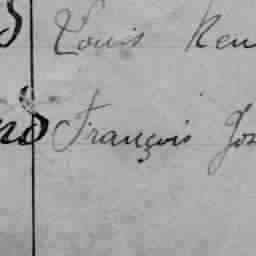 Louis Ren
François Jos